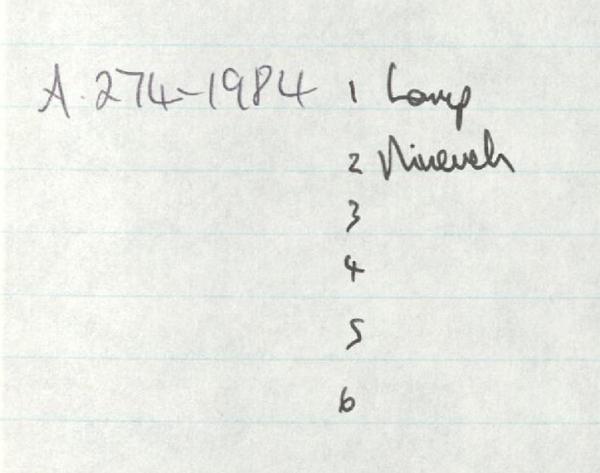 A.274-1984 1 Lamp
2 Nineveh
3
4
5
6